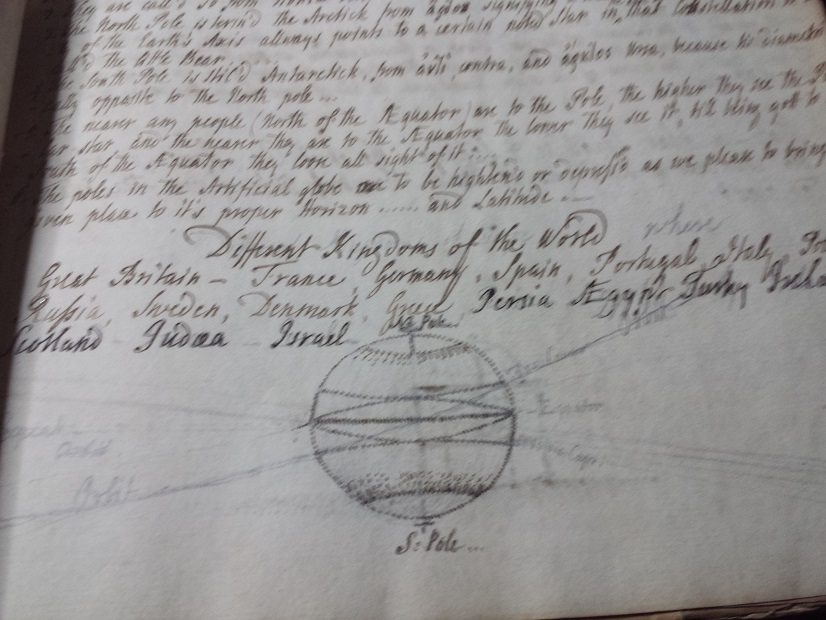 are call'd so from
the North Pole is term'd the Arctick from signifying
of the Earth's Axis allways points to a certain noted Star in that Constellation
the little Bear.
the South Pole is still'd Antarctick, from contra, and Ursa, because
opposite to the North pole...
nearer any people (North of the Æquator) are to the Pole, the higher they see the
Star, and the nearer they are to the Æquator the lower they see it, till being got to
South of the Æquator they loose all sight of it
The poles in the Artificial globe are to be highten'd or depress'd as we please to bring
given place to it's proper Horizon ..... and Latitude.
Different Kingdoms of the World where
Great Britain - France, Germany, Spain, Portugal, Italy,
Russia, Sweden, Denmark, Greec Persia Ægypt Turky
Scotland Judæa Israel
No Pole
Equator
Orbit
S: Pole...